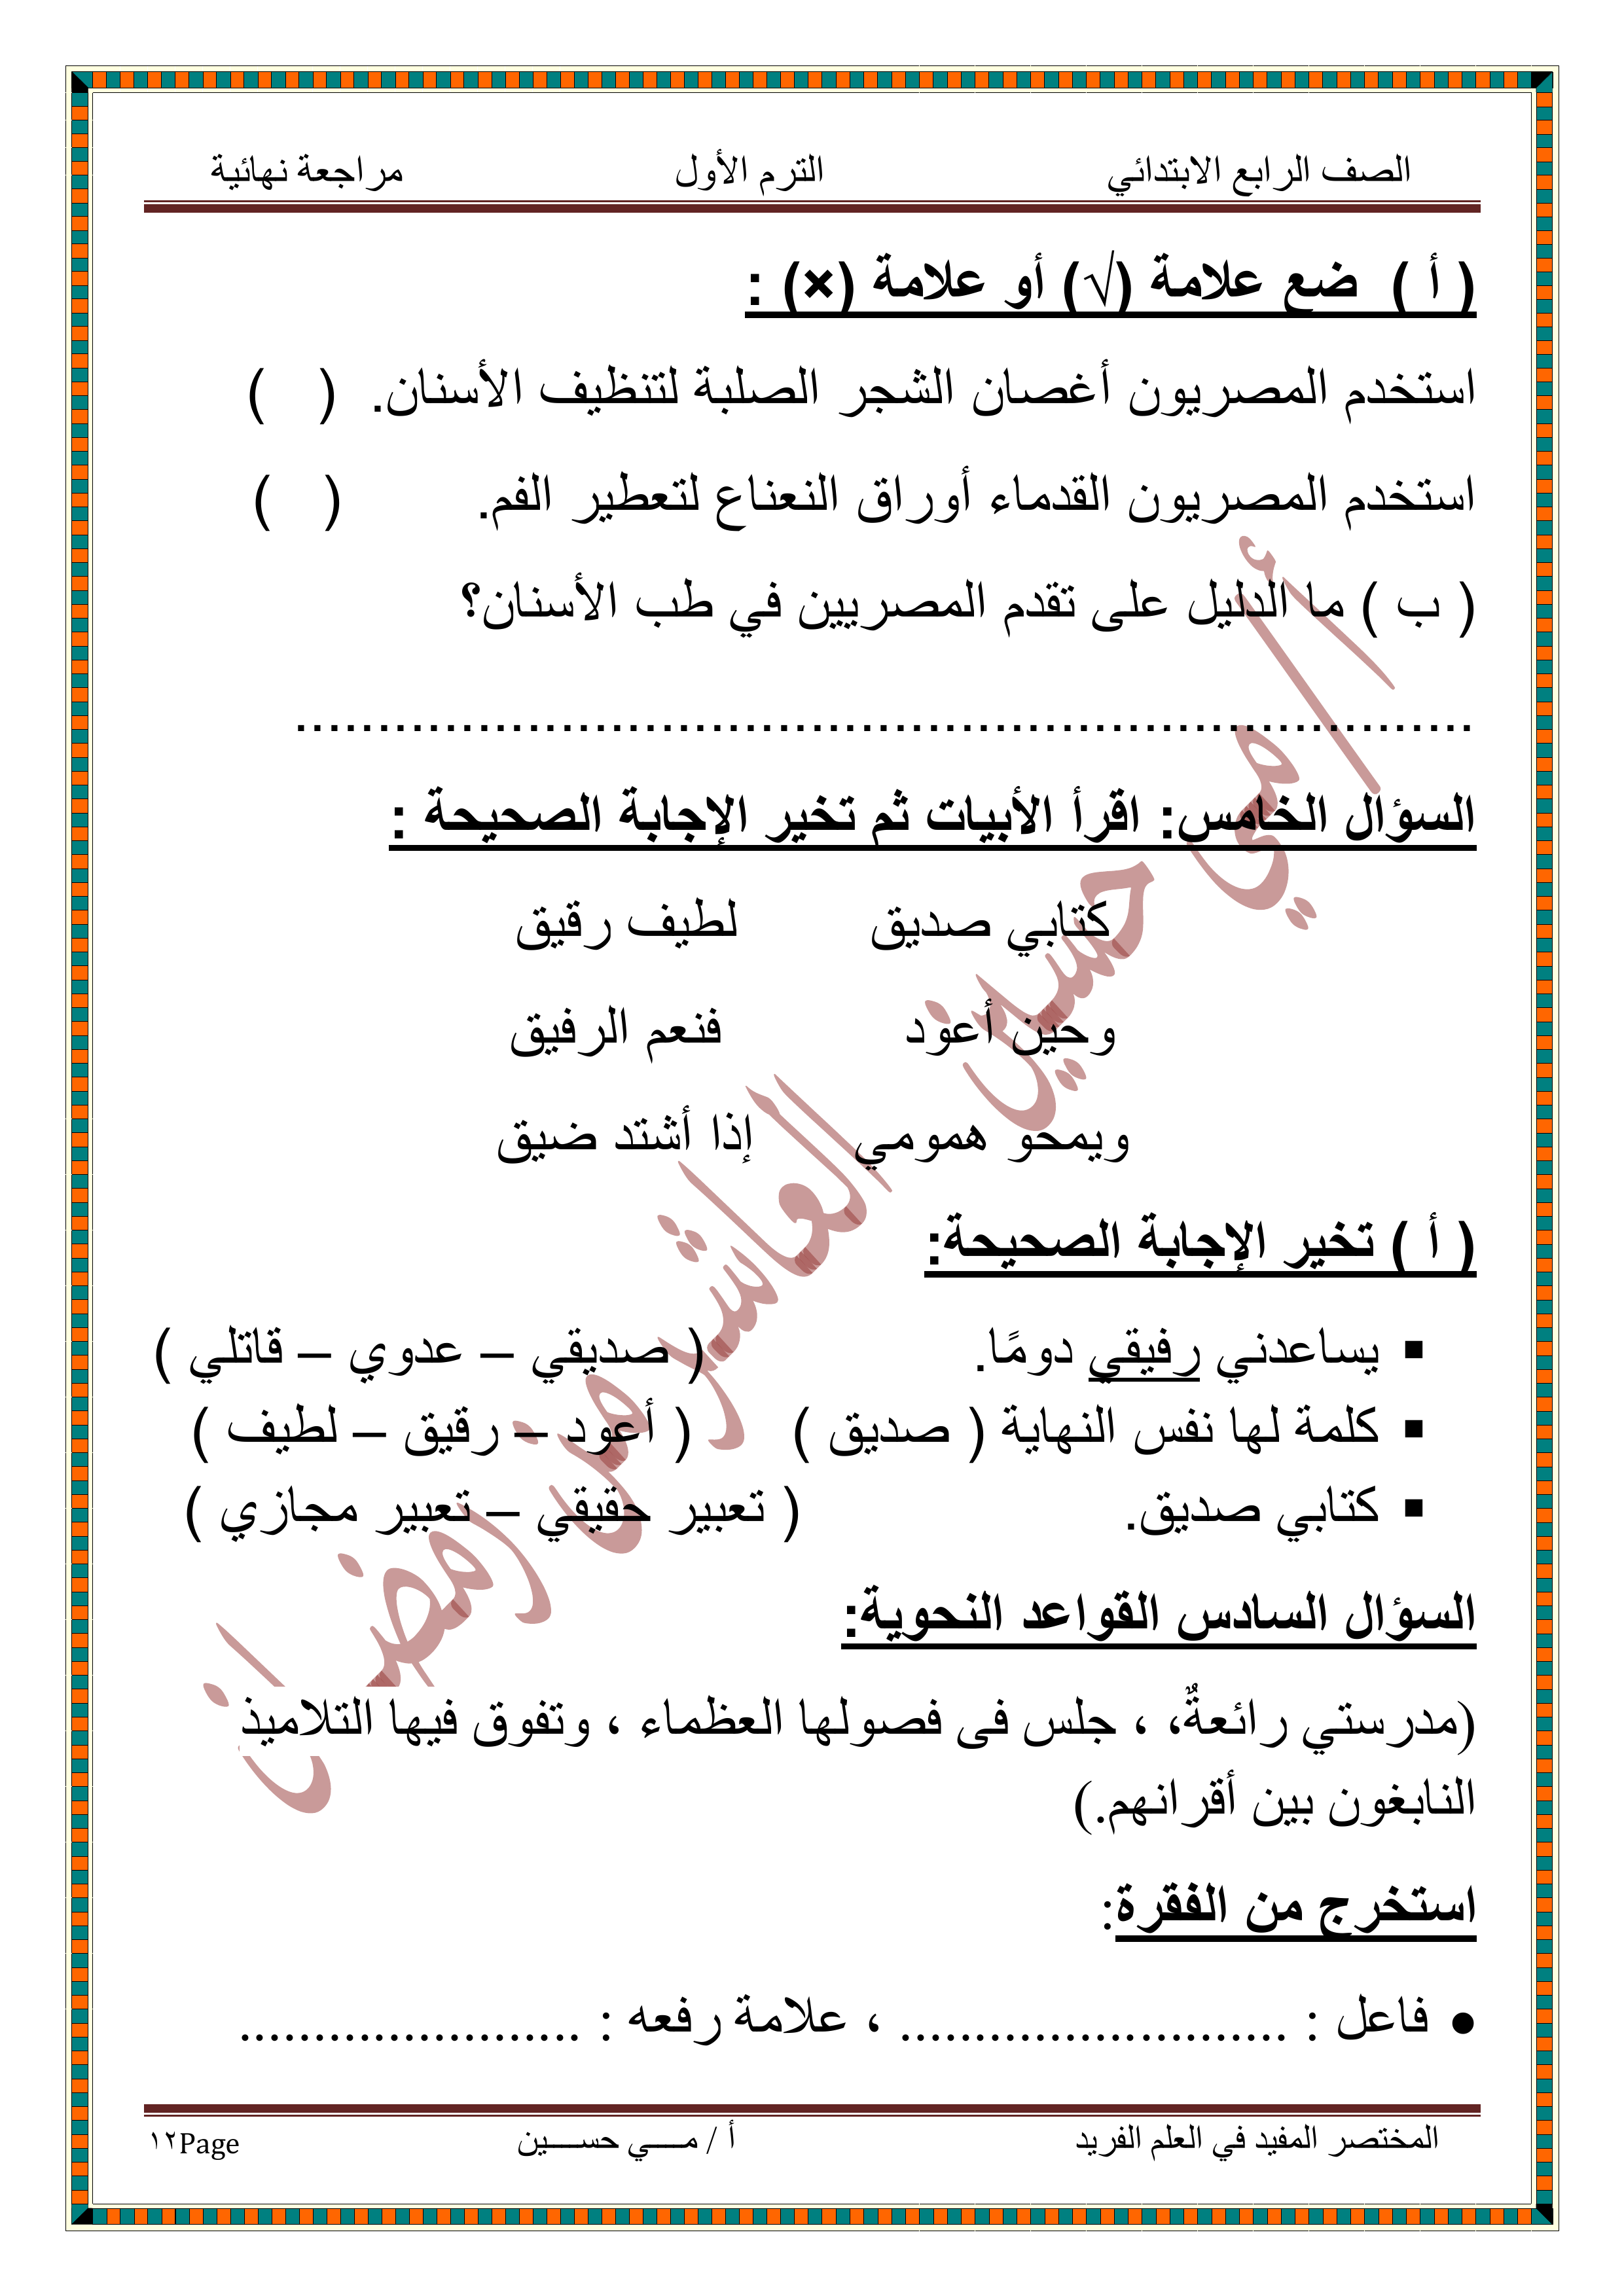 الصف الرابع الابتدائي الترم الأول مراجعة نهائية
( أ ) ضع علامة (√) أو علامة (×) :
استخدم المصريون أغصان الشجر الصلبة لتنظيف الأسنان. ( )
استخدم المصريون القدماء أوراق النعناع لتعطير الفم. ( )
( ب ) ما الدليل على تقدم المصريين في طب الأسنان؟
......................................................................
السؤال الخامس: اقرأ الأبيات ثم تخير الإجابة الصحيحة :
كتابي صديق لطيف رقيق
وحين أعود فنعم الرفيق
ويمحو همومي إذا أشتد ضيق
( أ ) تخير الإجابة الصحيحة:
▪ يساعدني رفيقي دومًا. ( صديقي – عدوي – قاتلي )
▪ كلمة لها نفس النهاية ( صديق ) ( أعود – رقيق – لطيف )
▪ كتابي صديق. ( تعبير حقيقي – تعبير مجازي )
السؤال السادس القواعد النحوية:
(مدرستي رائعةٌ، ، جلس فى فصولها العظماء ، وتفوق فيها التلاميذ
النابغون بين أقرانهم.)
استخرج من الفقرة:
• فاعل : .......................... ، علامة رفعه : .......................
المختصر المفيد في العلم الفريد أ / مـــي حســـين ١٢Page
أ/مي حسين العاشر من رمضان